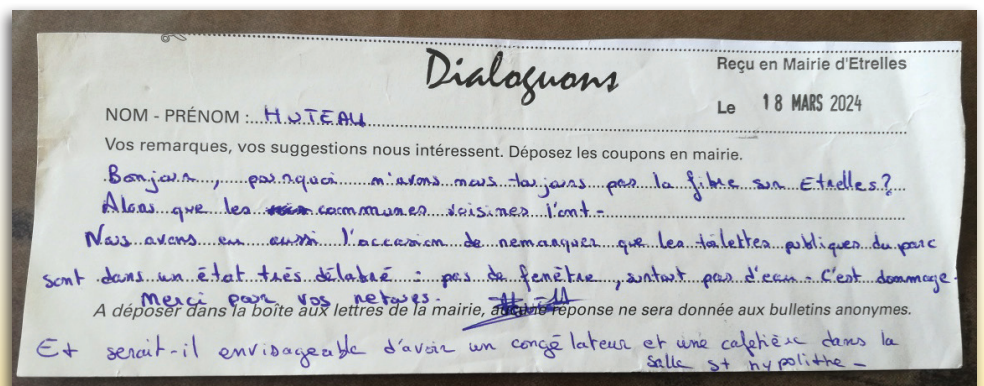 Dialoguons
Reçu en Mairie d'Etrelles
Le 18 MARS 2024
NOM - PRÉNOM : HUTEAU
Vos remarques, vos suggestions nous intéressent. Déposez les coupons en mairie.
Bonjour, pourquoi n'avons nous toujours pas la fibre sur Etrelles ?
Alors que les communes voisines l'ont -
Nous avons eu aussi l'occasion de remarquer que les toilettes publiques du parc
sont dans un état très délabré : pas de fenêtre, surtout pas d'eau - C'est dommage.
Merci pour vos retours.
A déposer dans la boîte aux lettres de la mairie, aucune réponse ne sera donnée aux bulletins anonymes.
Et serait-il envisageable d'avoir un congélateur et une cafetière dans la
salle st hypolithe -